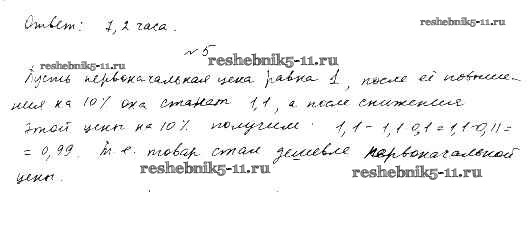 Ответ: 7,2 часа.
reshebnik5-11.ru
№ 5
reshebnik5-11.ru
Пусть первоначальная цена равна 1, после её повыше-
ния на 10% она станет 1,1, а после снижения
этой цены на 10% получим 1,1 - 1,1·0,1 = 1,1 - 0,11 =
= 0,99. Т.е. товар стал дешевле первоначальной
цены.
reshebnik5-11.ru
reshebnik5-11.ru
reshebnik5-11.ru